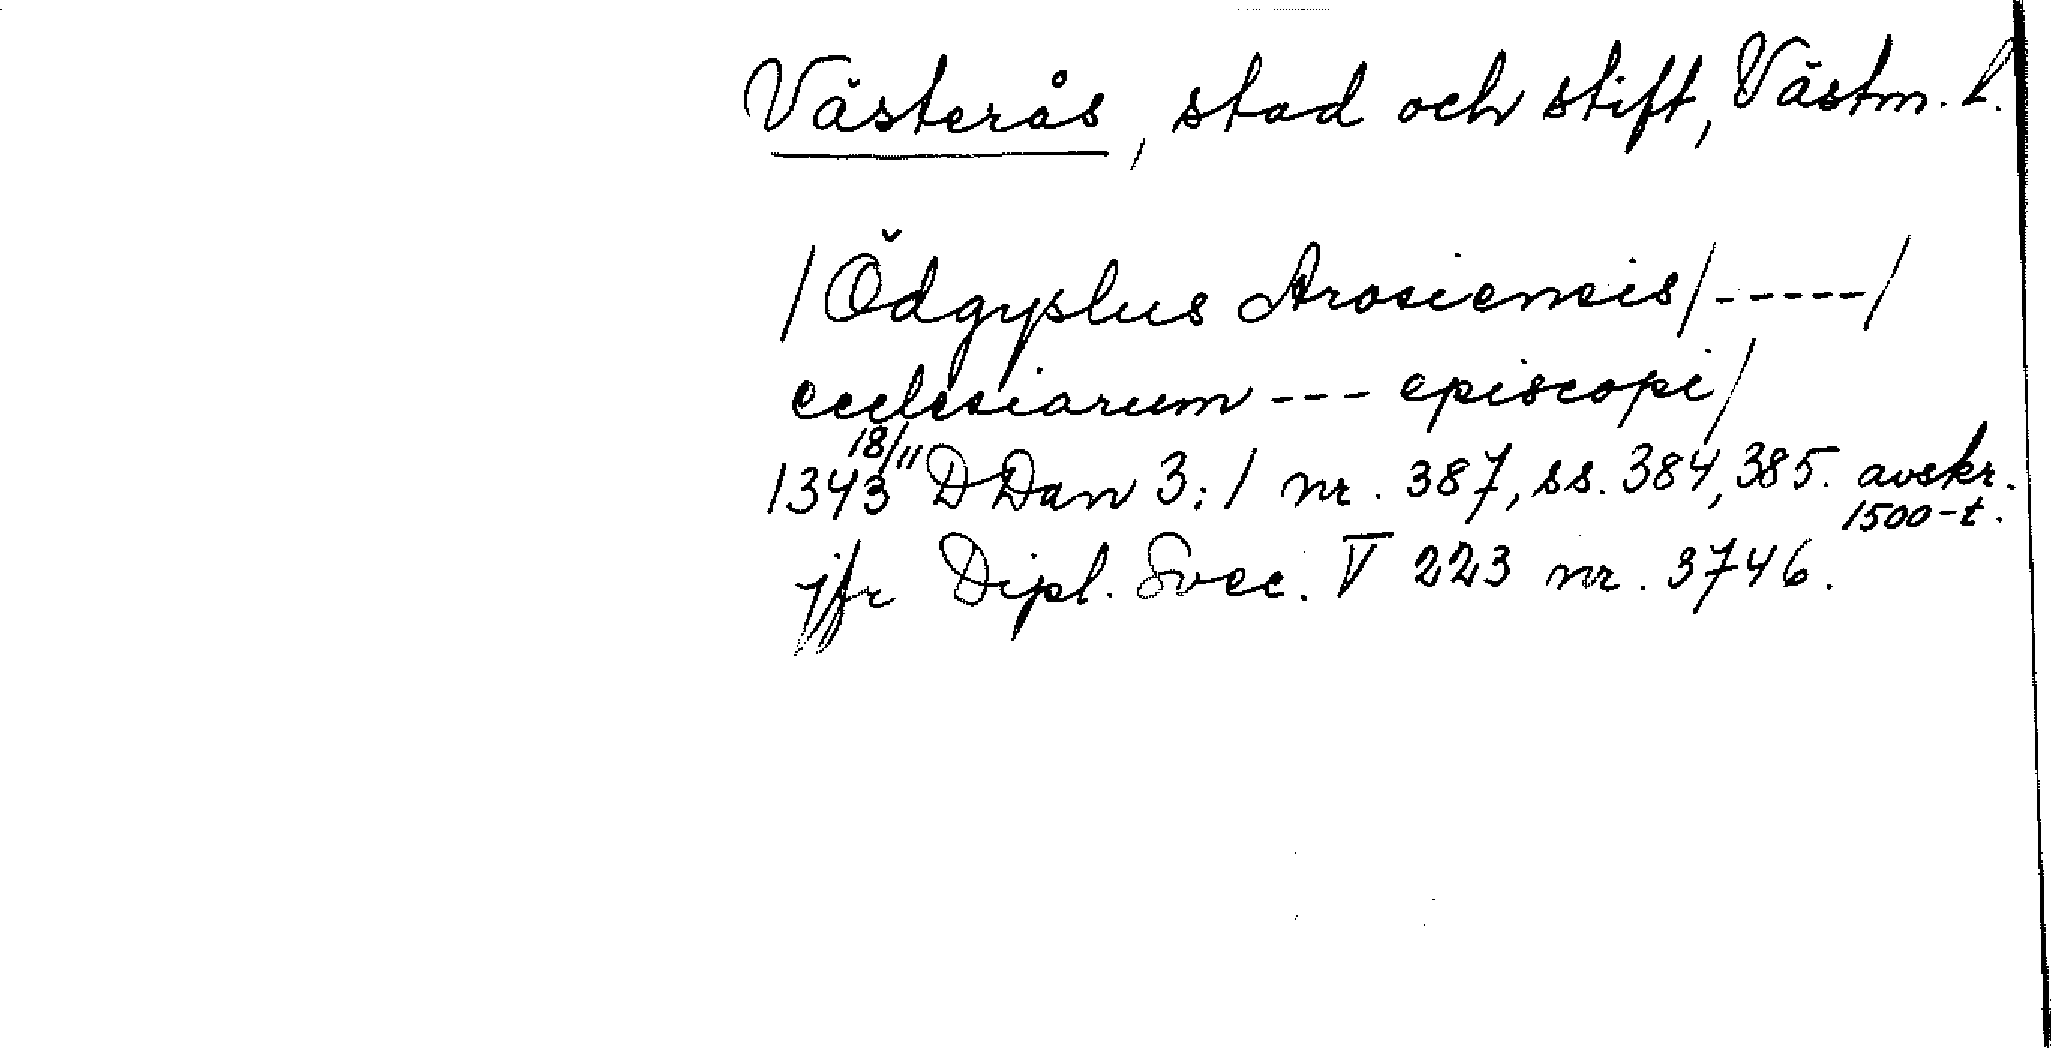 Västerås, stad och stift, Västm. l.
/Ödgyslus Arosiensis/-----/
ecclesiarum --- episcopi/
1343 18/11 D Dan 3:1 nr. 387, ss. 384, 385. avskr. 1500-t.
jfr Dipl. Svec. V 223 nr. 3746.